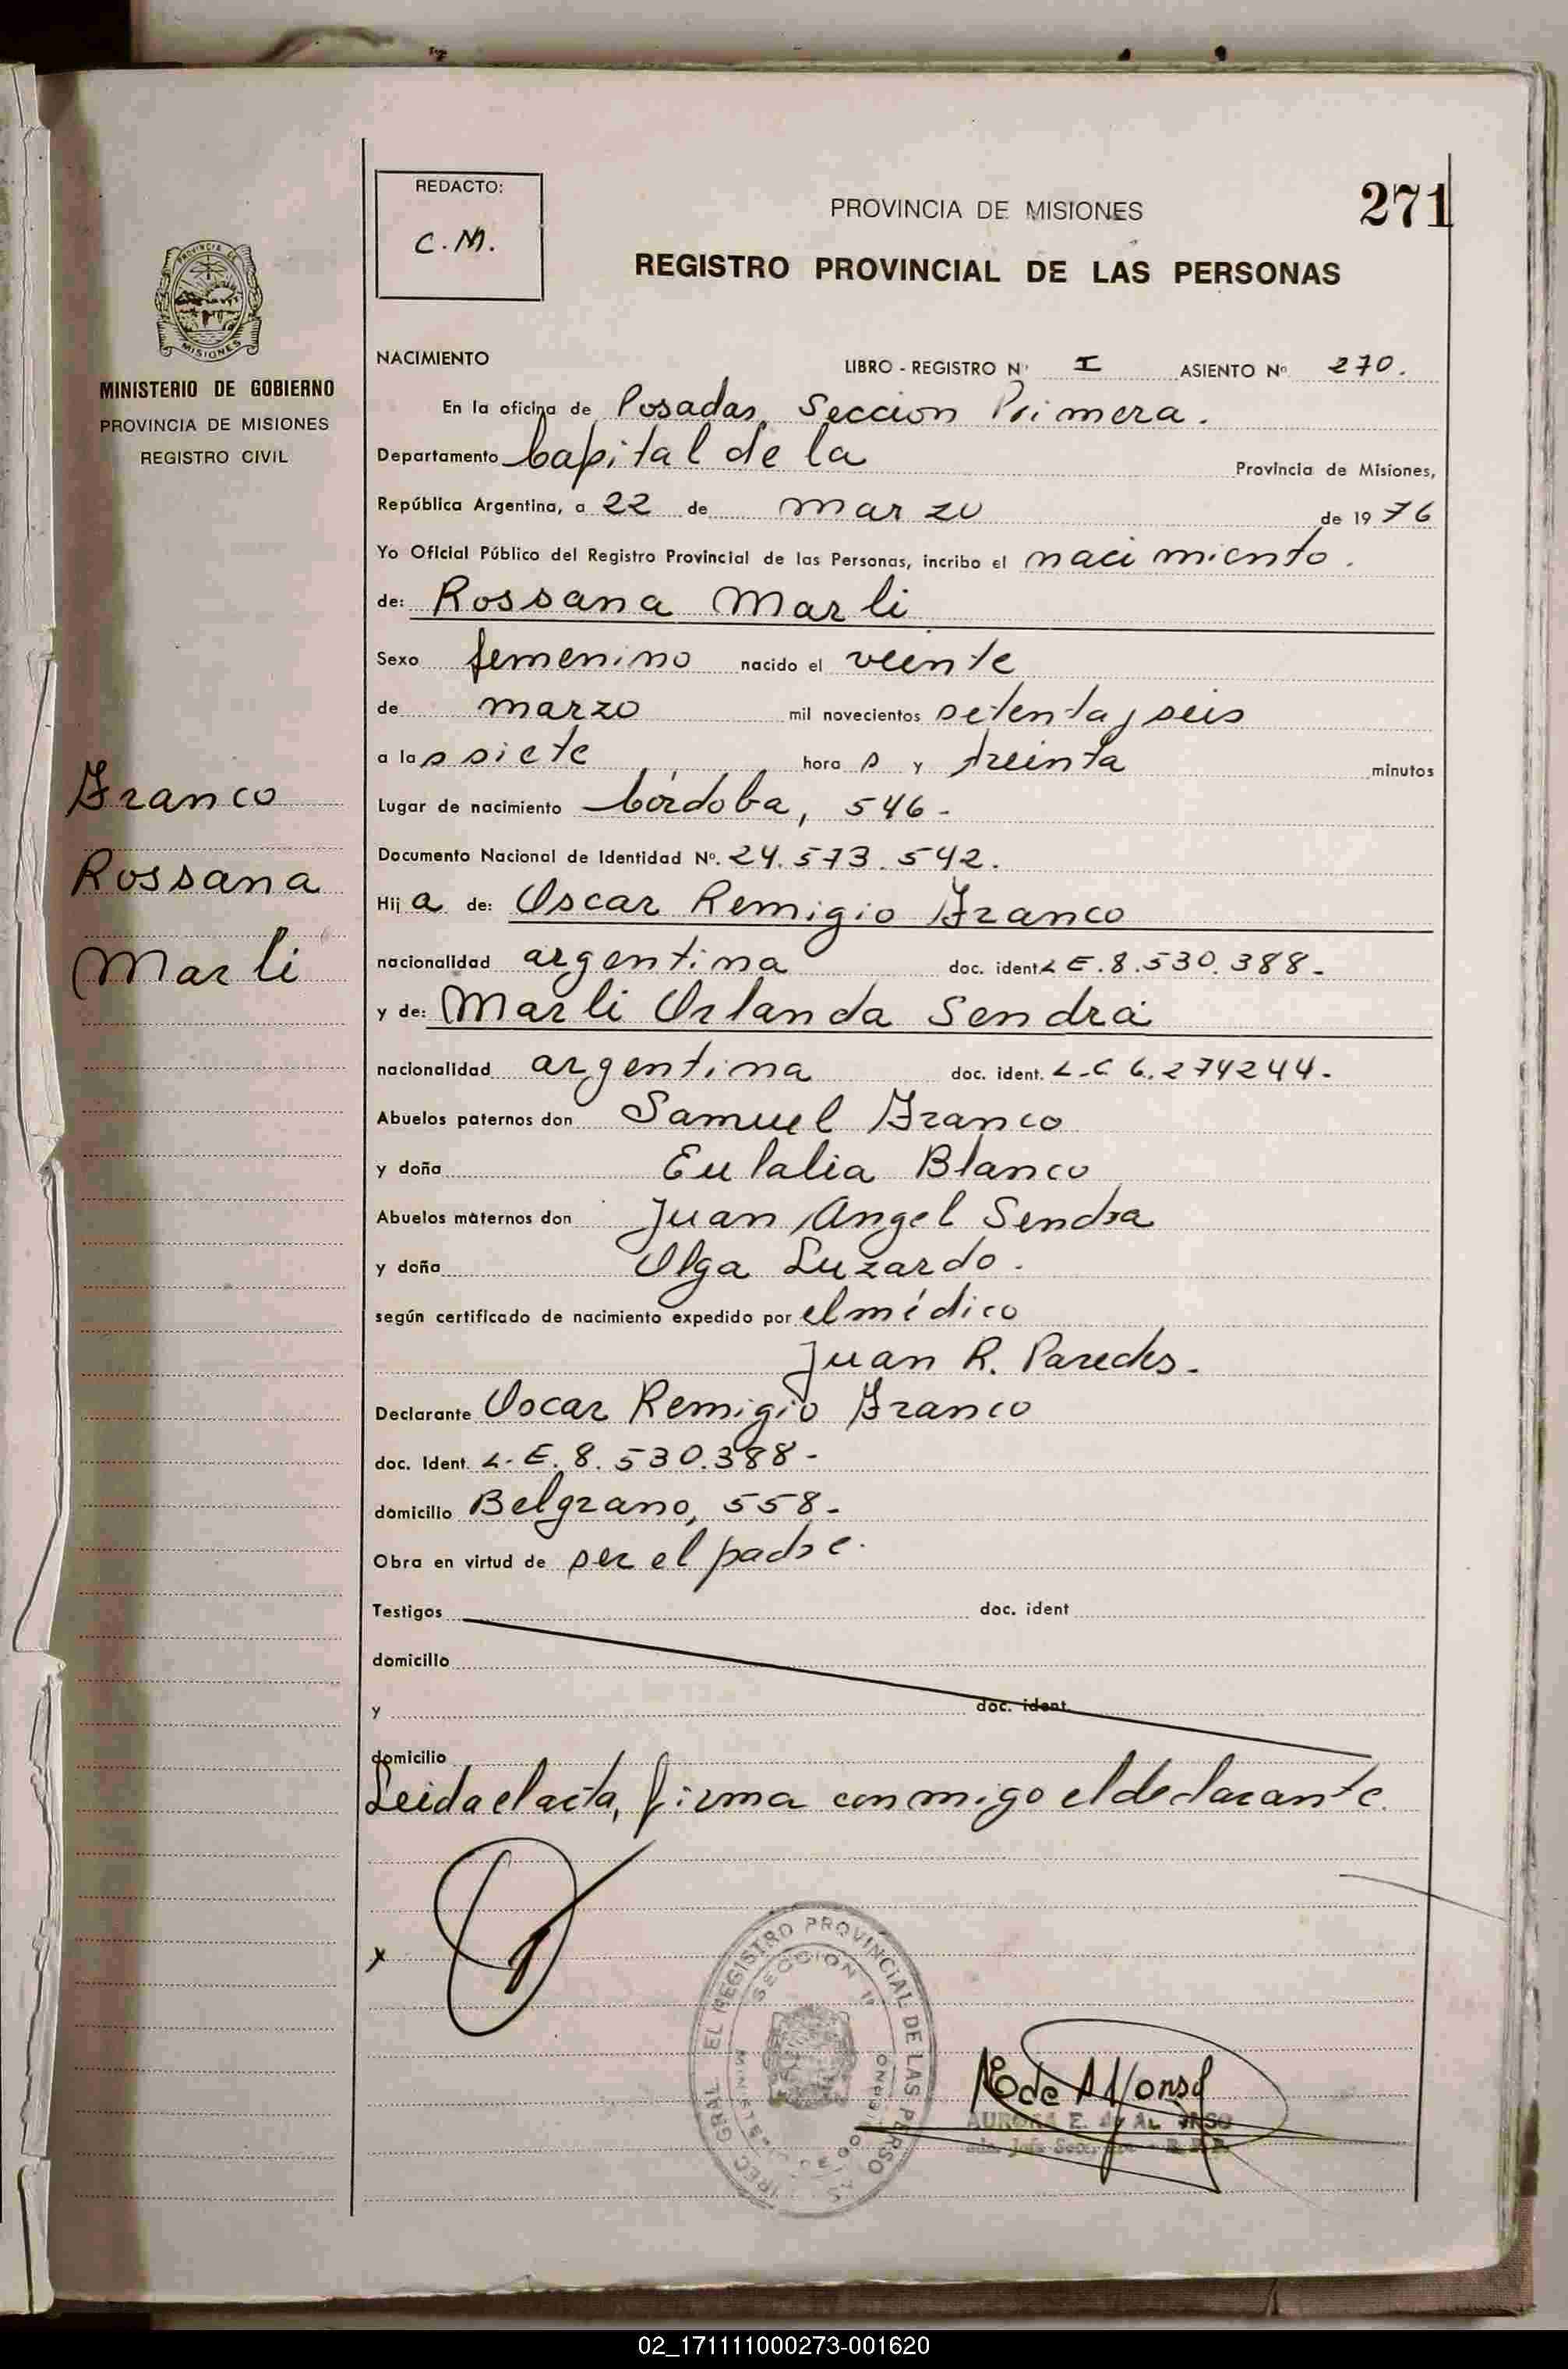 REDACTO:
C.M.
PROVINCIA DE MISIONES
271
REGISTRO PROVINCIAL DE LAS PERSONAS
PROVINCIA DE MISIONES
MINISTERIO DE GOBIERNO
PROVINCIA DE MISIONES
REGISTRO CIVIL
Franco
Rossana
Marli
NACIMIENTO LIBRO - REGISTRO Nº I ASIENTO Nº 270.
En la oficina de Posadas, Seccion Primera.
Departamento Capital de la Provincia de Misiones,
República Argentina, a 22 de marzo de 1976
Yo Oficial Público del Registro Provincial de las Personas, incribo el nacimiento.
de: Rossana Marli
Sexo femenino nacido el veinte
de marzo mil novecientos setenta y seis
a las siete hora s y treinta minutos
Lugar de nacimiento Córdoba, 546-
Documento Nacional de Identidad Nº. 24.573.542.
Hija de: Oscar Remigio Franco
nacionalidad argentina doc. ident L E. 8.530.388-
y de: Marli Orlanda Sendra
nacionalidad argentina doc. ident. L-C 6.274244-
Abuelos paternos don Samuel Franco
y doña Eulalia Blanco
Abuelos maternos don Juan Angel Sendra
y doña Olga Luzardo.
según certificado de nacimiento expedido por el médico
Juan R. Paredes-
Declarante Oscar Remigio Franco
doc. Ident. L-E. 8.530.388-
domicilio Belgrano, 558-
Obra en virtud de ser el padre.
Testigos doc. ident
domicilio
y doc. ident.
domicilio
Leida el acta, firma conmigo el declarante.
x
EL REGISTRO PROVINCIAL DE LAS PERSO
SECCION
E de Alfonso
AURORA E. de AL
02_171111000273-001620